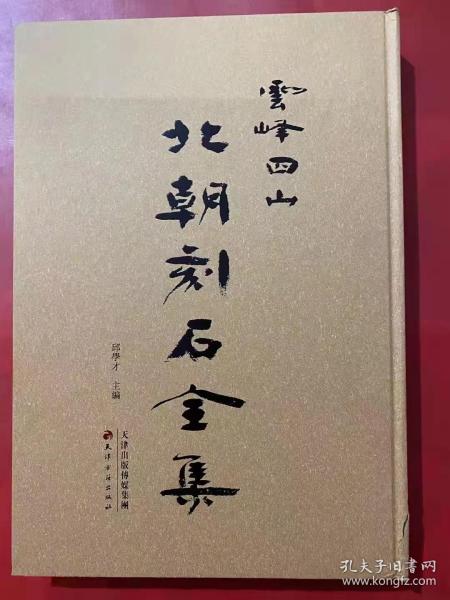 雲峰四山
北朝刻石全集
邱學才 主編
天津出版傳媒集團
天津古籍出版社
孔夫子旧书网
www.kongfz.com